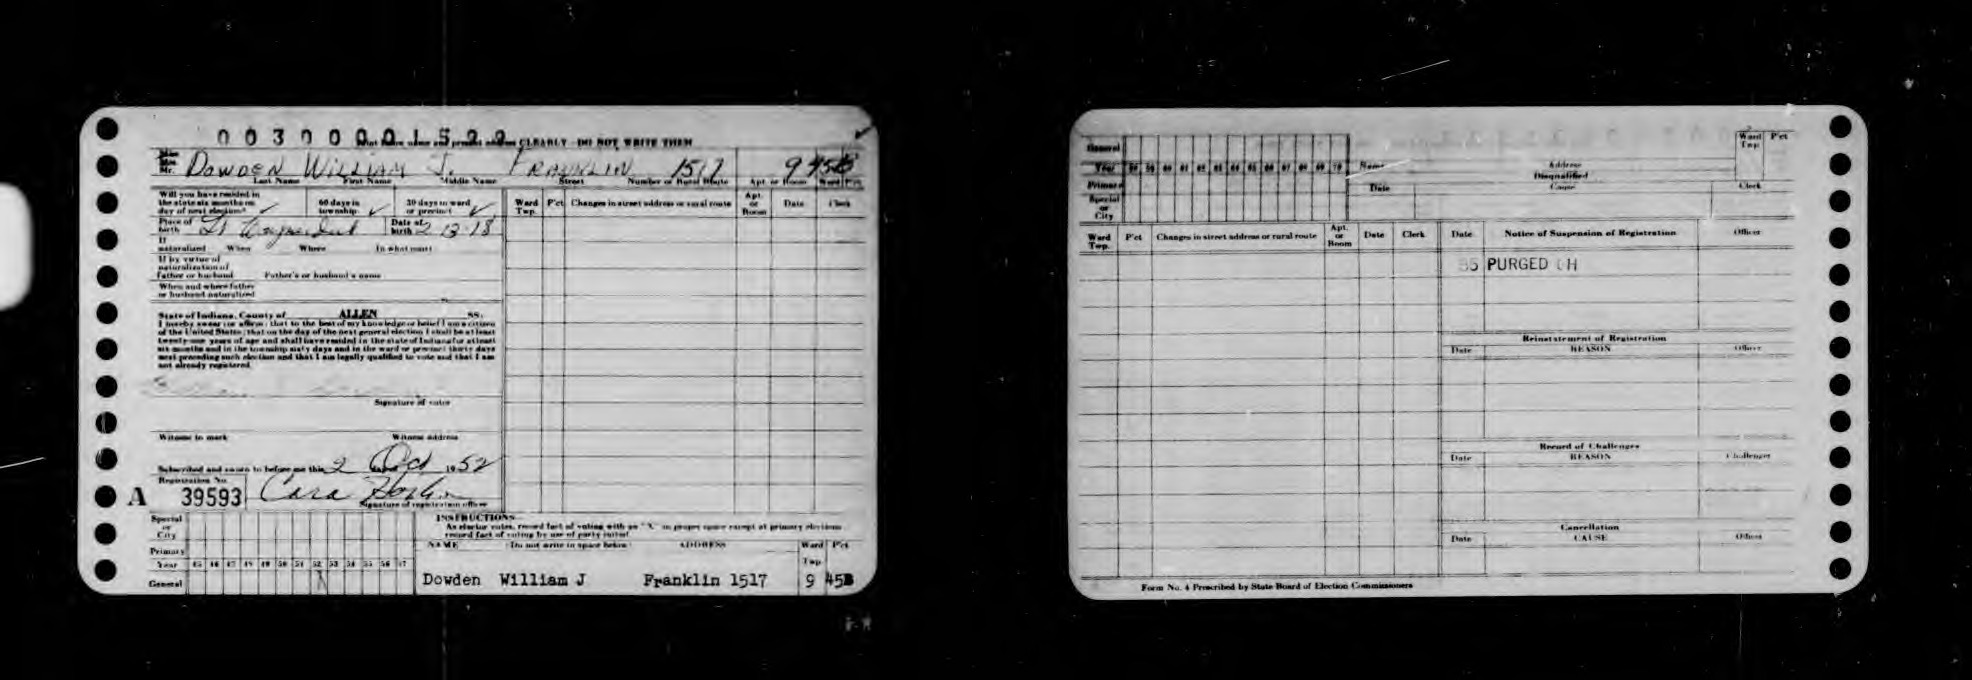 003000001599
Print below name and present address CLEARLY - DO NOT WRITE THEM
Miss
Mrs.
Mr. DOWDEN WILLIAM J. FRANKLIN 1517 9
Last Name First Name Middle Name Street Number or Rural Route Apt. or Room Ward P'ct
Will you have resided in the state six months on day of next election? ✓ 60 days in township ✓ 30 days in ward or precinct ✓
Ward Twp. P'ct Changes in street address or rural route Apt. or Room Date Clerk
Place of birth Ft Wayne Ind Date of birth 2 13 18
If naturalized When Where In what court
If by virtue of naturalization of father or husband Father's or husband's name
When and where father or husband naturalized
State of Indiana, County of ALLEN SS:
I hereby swear (or affirm) that to the best of my knowledge or belief I am a citizen
of the United States; that on the day of the next general election I shall be at least
twenty-one years of age and shall have resided in the state of Indiana for at least
six months and in the township sixty days and in the ward or precinct thirty days
next preceding such election and that I am legally qualified to vote and that I am
not already registered.
Signature of voter
Witness to mark Witness address
Subscribed and sworn to before me this 2 Oct 1952
Registration No.
A 39593 Cara
Signature of registration officer
Special or City
Primary
Year 45 46 47 48 49 50 51 52 53 54 55 56 57
General X
INSTRUCTIONS
As elector votes, record fact of voting with an "X" in proper space except at primary elections
record fact of voting by use of party initial
NAME (Do not write in space below) ADDRESS Ward Twp. P'ct
Dowden William J Franklin 1517 9 45B
General
Year 58 59 60 61 62 63 64 65 66 67 68 69 70
Primary
Special or City
Name Address Ward Twp. P'ct
Disqualified
Date Cause Clerk
Ward Twp. P'ct Changes in street address or rural route Apt. or Room Date Clerk
Date Notice of Suspension of Registration Officer
PURGED
Reinstatement of Registration
Date REASON Officer
Record of Challenges
Date REASON Challenger
Cancellation
Date CAUSE Officer
Form No. 4 Prescribed by State Board of Election Commissioners